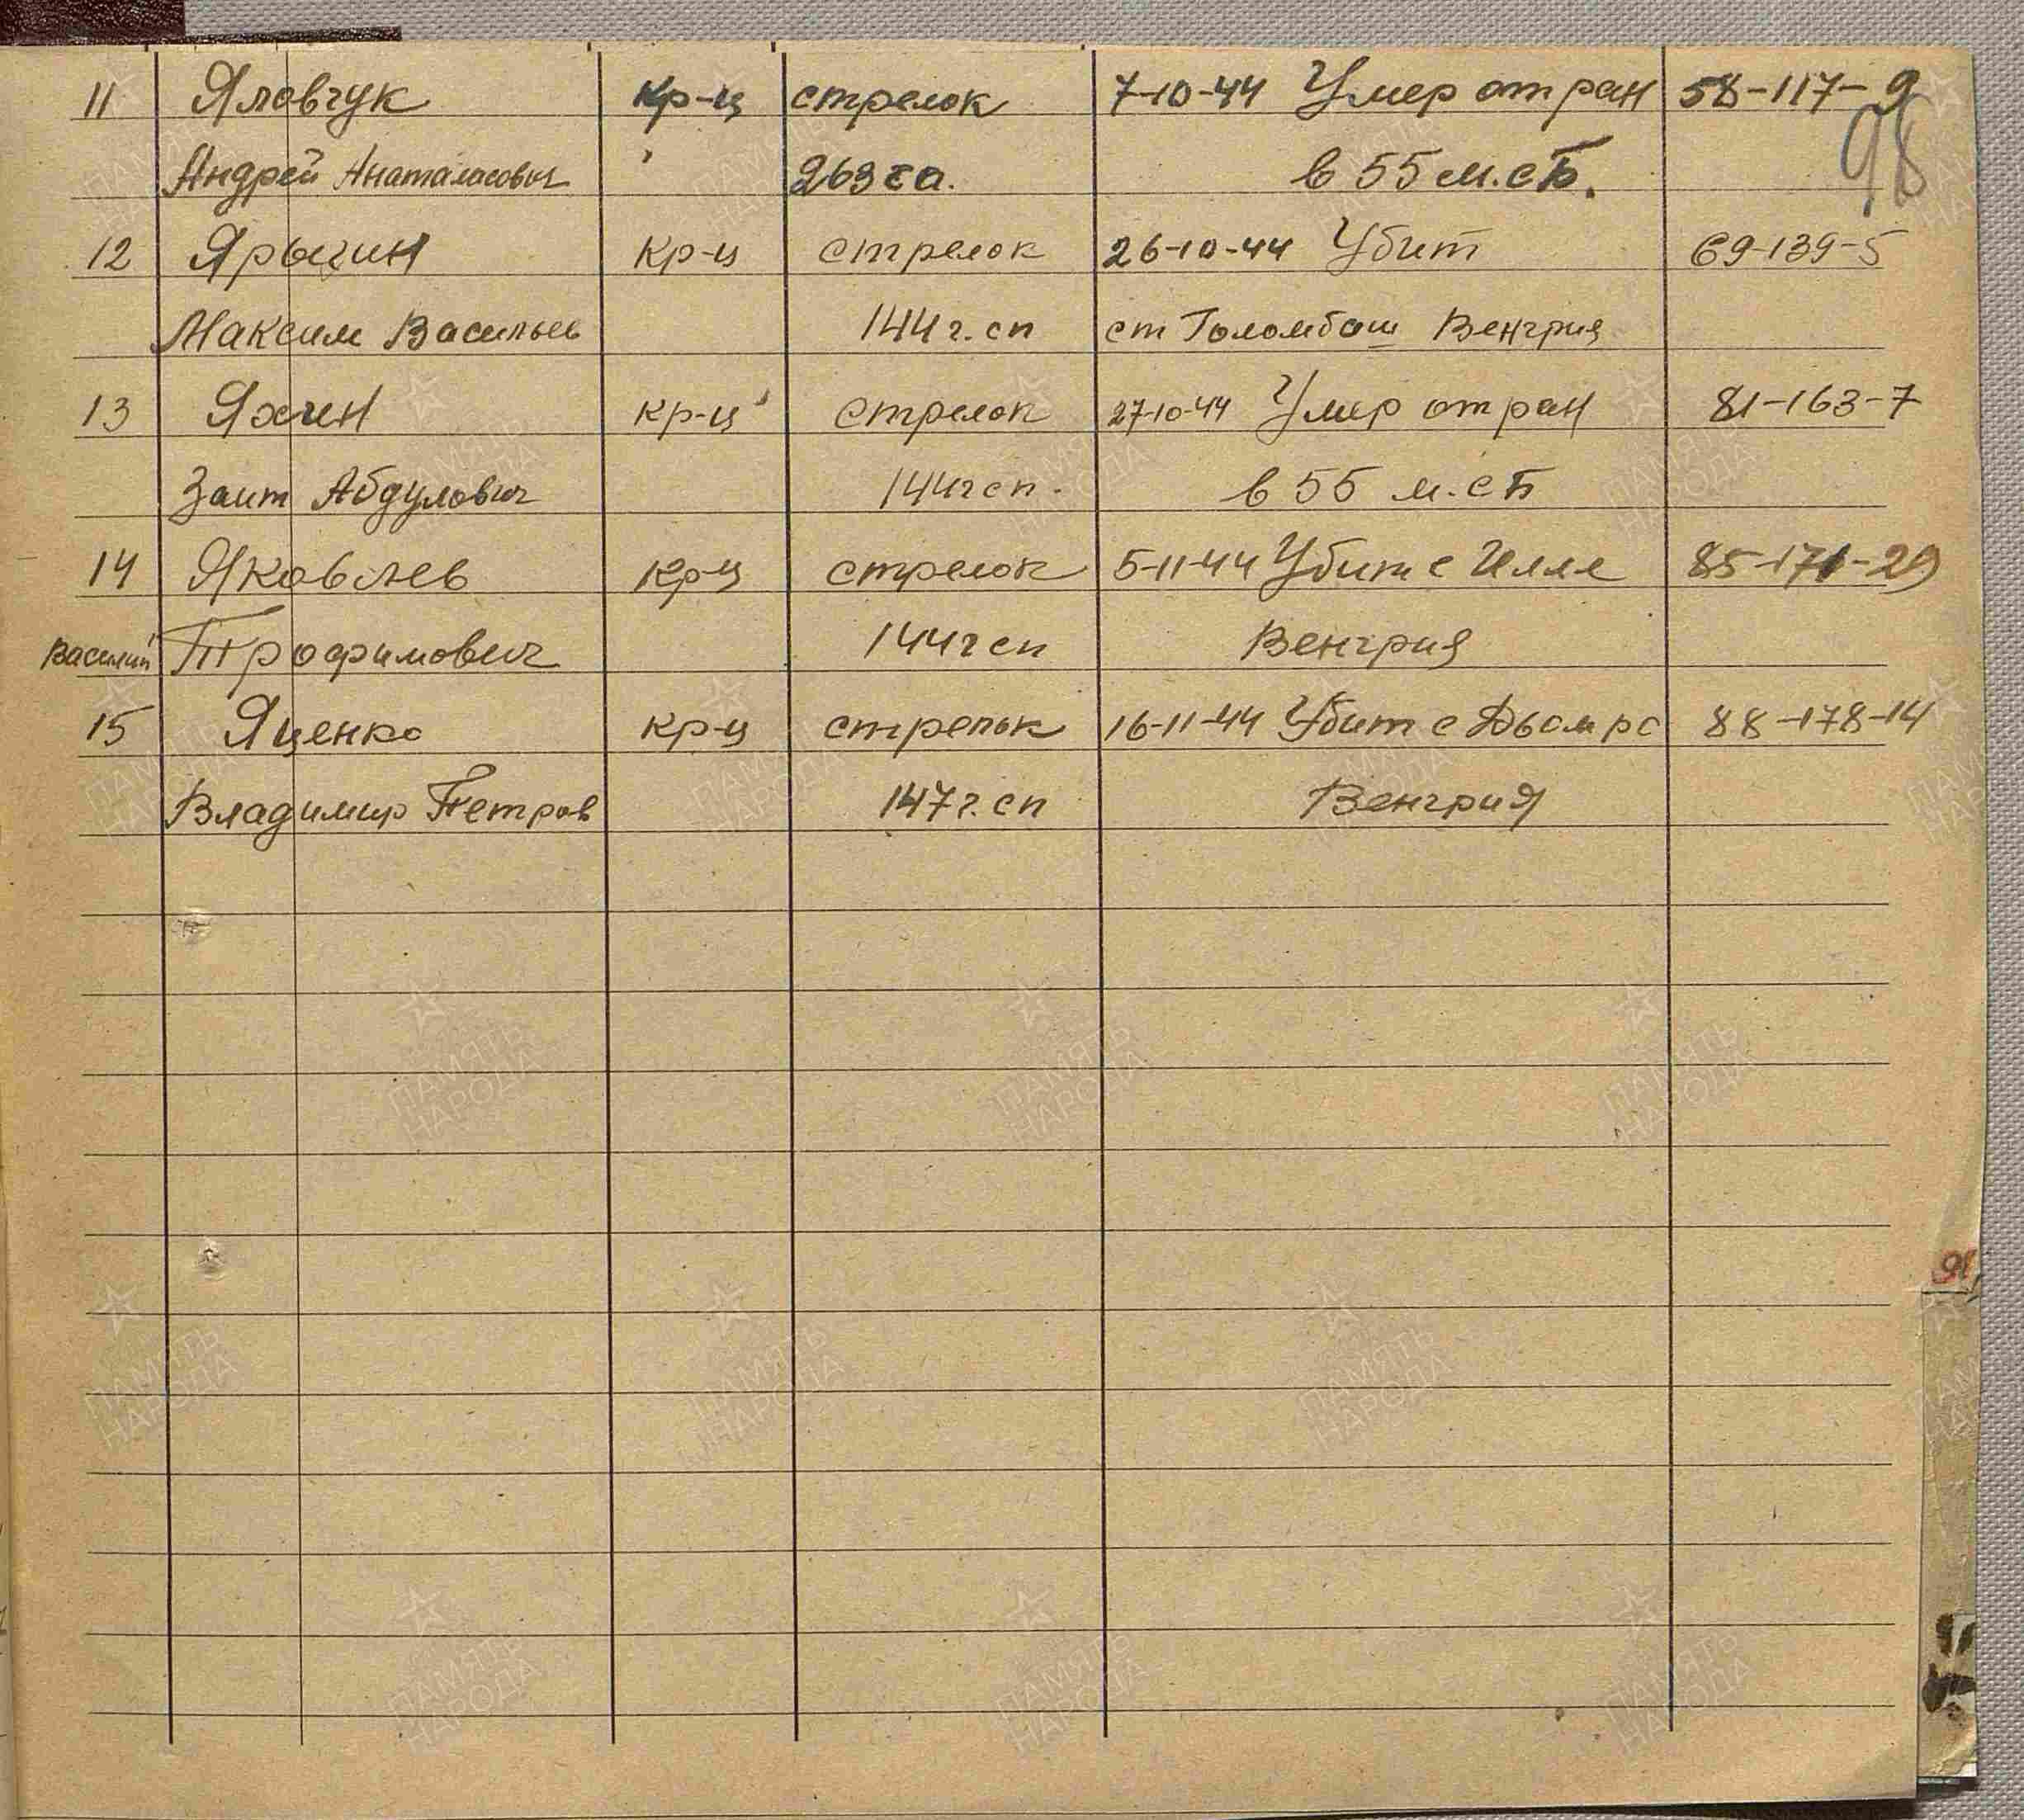 11 Яловчук кр-ц стрелок 7-10-44 Умер от ран 58-117-9
98
Андрей 263 са. в 55 м.сБ.
12 Ярыгин кр-ц стрелок 26-10-44 Убит 69-139-5
Максим Васильев 144 г. сп ст Голомбош Венгрия
13 Яхин кр-ц стрелок 27-10-44 Умер от ран 81-163-7
Заит Абдулович 144 г сп. в 55 м.сБ
14 Яковлев кр-ц стрелок 5-11-44 Убит с Илле 85-171-29
Василий Трофимович 144 г сп Венгрия
15 Яценко кр-ц стрелок 16-11-44 Убит с 88-178-14
Владимир Петров 147 г. сп Венгрия
ПАМЯТЬ НАРОДА